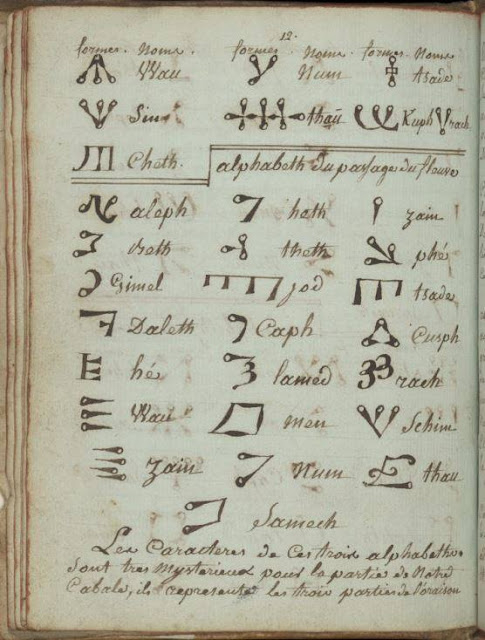 12.
formes. Noms. formes. Noms. formes. Noms
Wau Num tsade
Sin thaü Kuph rach
Cheth. alphabeth du passage du fleuve
aleph heth zain
Beth theth phé
Gimel jod tsade
Daleth Caph Cusph
hé lamed rach
Wau men Schim
zain Num thau
Samech
Les Caracteres de Ces trois alphabeths
Sont tres mysterieux pour la partie de Notre
Cabale, ils represente les trois parties de l'oraison